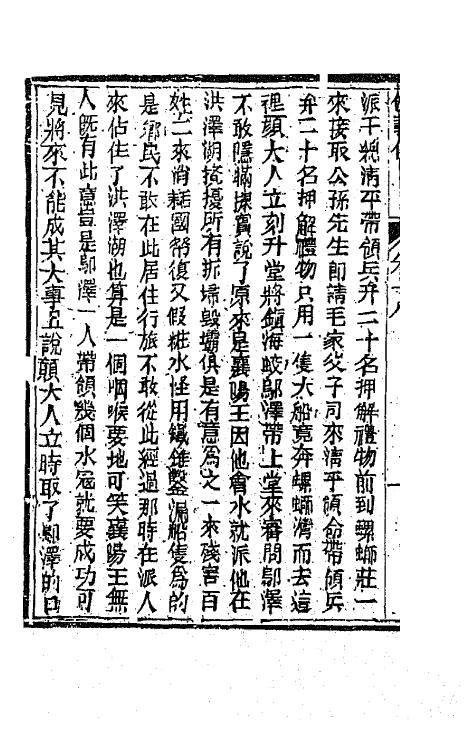 派千總清平帶領兵弁二十名押解禮物前到螺螄莊一
來接取公孫先生即請毛家父子司來清平領命帶領兵
弁二十名押解禮物只用一隻大船竟奔螺螄灣而去這
裡顏大人立刻升堂將鎮海蛟鄔澤帶上堂來審問鄔澤
不敢隱瞞據實說了原來是襄陽王因他會水就派他在
洪澤湖攪擾所有拆埽毀壩俱是有意為之一來殘害百
姓二來消耗國帑復又假粧水怪用鐵錐鑿漏船隻為的
是鄉民不敢在此居住行旅不敢從此經過那時在派人
來佔住了洪澤湖也算是一個咽喉要地可笑襄陽王無
人既有此意豈是鄔澤一人帶領幾個水寇就要成功可
見將來不能成其大事且說顏大人立時取了鄔澤的口